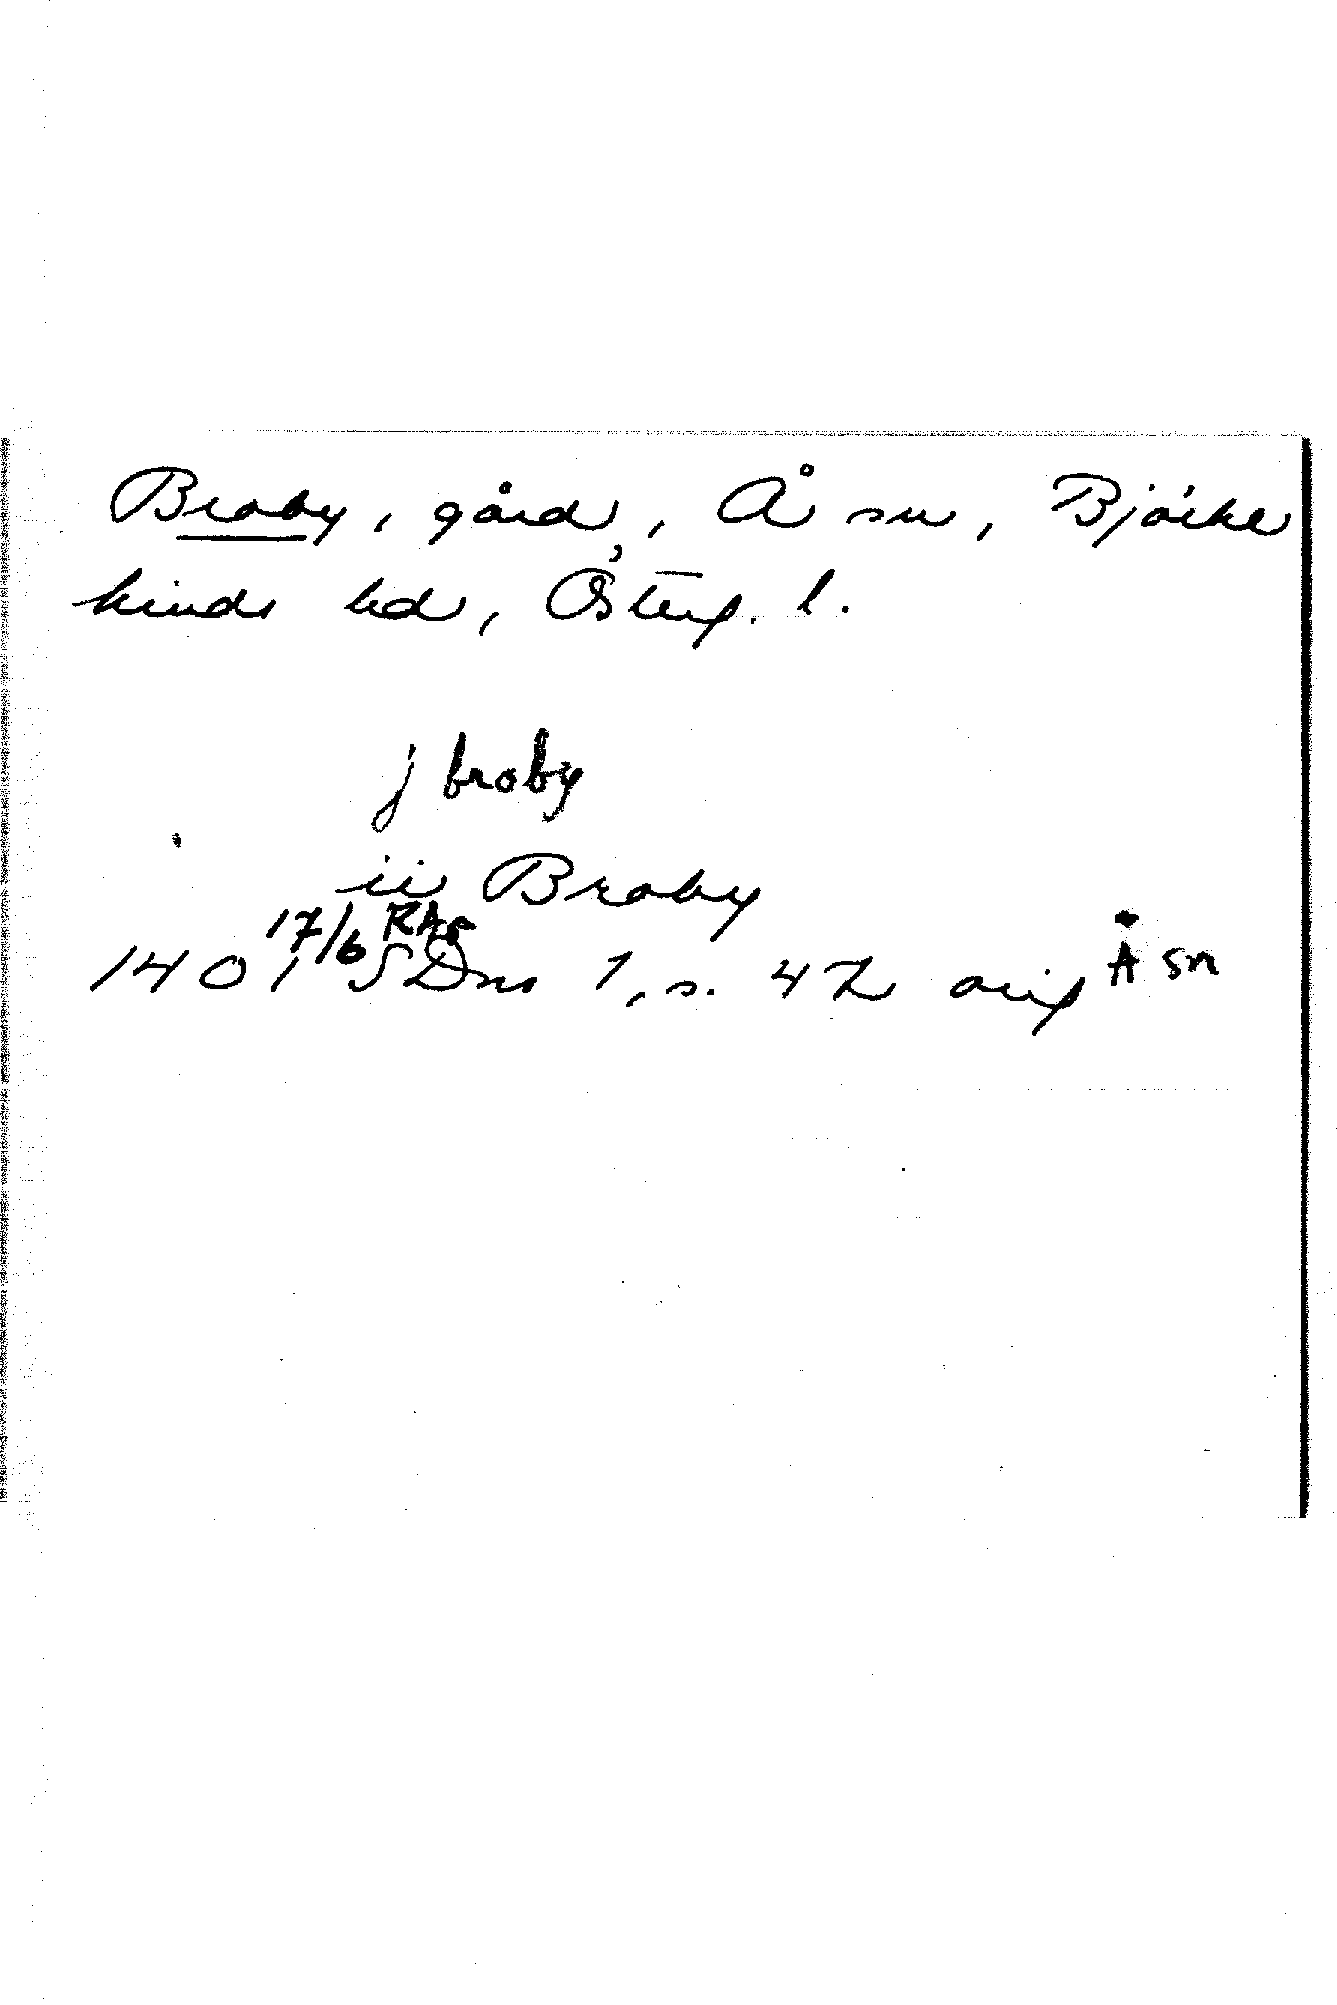 Broby, gård, Å sn, Björke
kinds hd,Österg. l.
j broby
ii Broby
17/6 RAp
1401 SDns 1, s. 42 orig Å sn